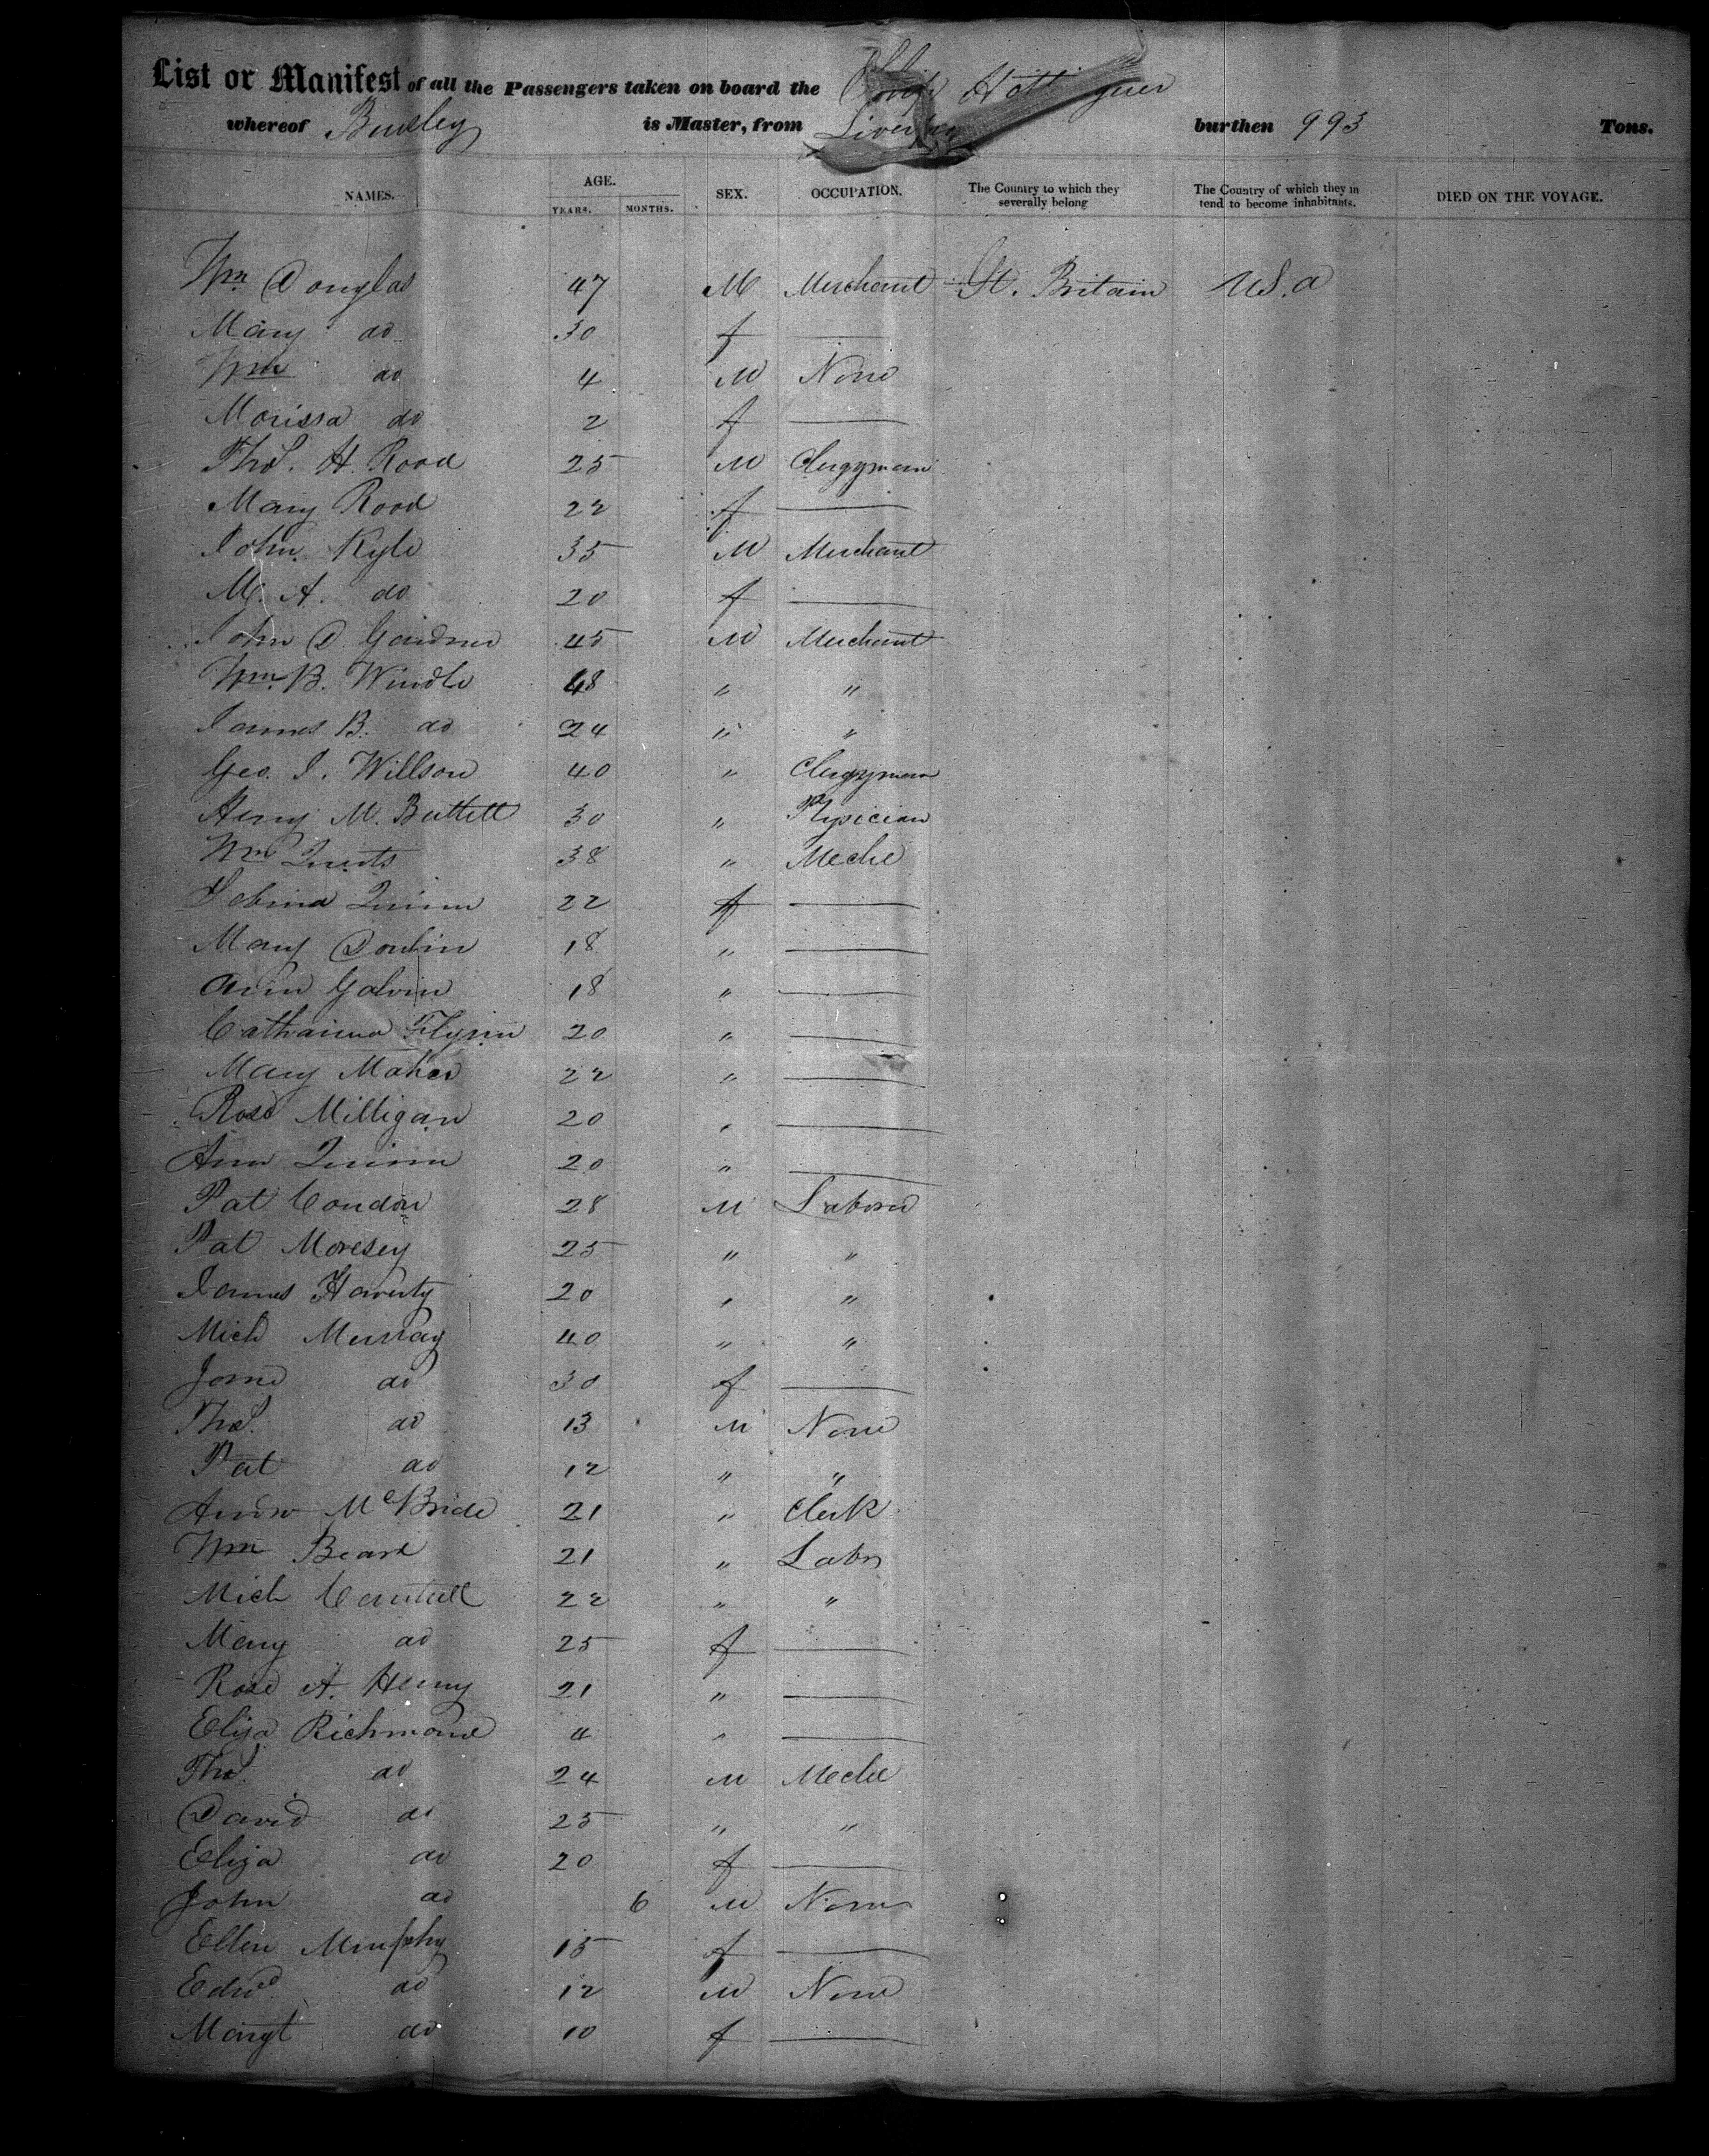 List or Manifest of all the Passengers taken on board the Ship Hottinguer
whereof Bursley is Master, from Liverpool burthen 993 Tons.
NAMES. AGE. SEX. OCCUPATION. The Country to which they severally belong The Country of which they intend to become inhabitants. DIED ON THE VOYAGE.
YEARS. MONTHS.
Wm Douglas 47 M Merchant Gt. Britain U.S.a
Mary do 30 f —
Wm do 4 M None
Morissa do 2 f —
Thos. H. Rood 25 M Clergyman
Mary Rood 22 f —
John Kyle 35 M Merchant
M. A. do 20 f —
John D Gardner 45 M Merchant
Wm. B. Windle 48 " "
James B. do 24 " "
Geo. J. Willson 40 " Clergyman
Henry M. Buttell 30 " Physician
Wm 38 " Meche
Quinn 22 f —
Mary Conlin 18 " —
Ann Galvin 18 " —
Catharine Flynn 20 " —
Mary Maher 22 " —
Rose Milligan 20 " —
Ann Quinn 20 " —
Pat Condon 28 M Laborer
Pat Moresey 25 " "
James Haverty 20 " "
Mich Murray 40 " "
Jane do 30 f —
Thos. do 13 M None
Pat do 12 " "
Andw McBride 21 " Clerk
Wm Beard 21 " Labr
Mich Cantwell 22 " "
Mary do 25 f —
Rose A. Henry 21 " —
Eliza Richmond 4 " —
Thos. do 24 M Meche
David do 25 " "
Eliza do 20 f —
John do 6 M None
Ellen Murphy 15 f —
Edwd. do 12 M None
Margt do 10 f —